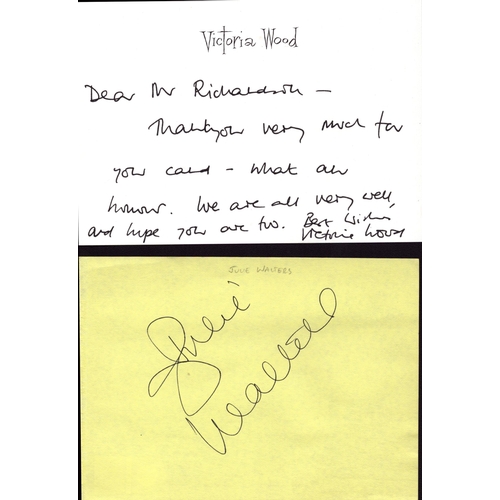 Victoria Wood
Dear Mr Richardson –
Thankyou very much for
your card – what an
honour. We are all very well,
and hope you are too. Best Wishes
Victoria Wood
JULIE WALTERS
Julie
Walters